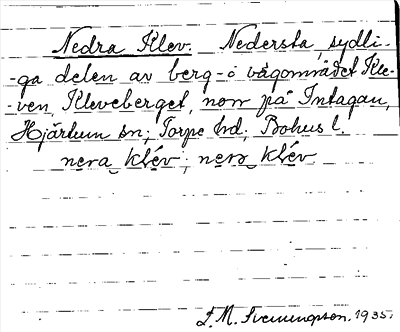 Nedra Klev. Nedersta, sydli-
-ga delen av berg- o vägområdet Kle-
-ven, Kleveberget, norr på Intagan,
Hjärtum sn; Torpe hd, Bohus l.
nera klév; nerə klév
L. M. Svenungsson. 1935.